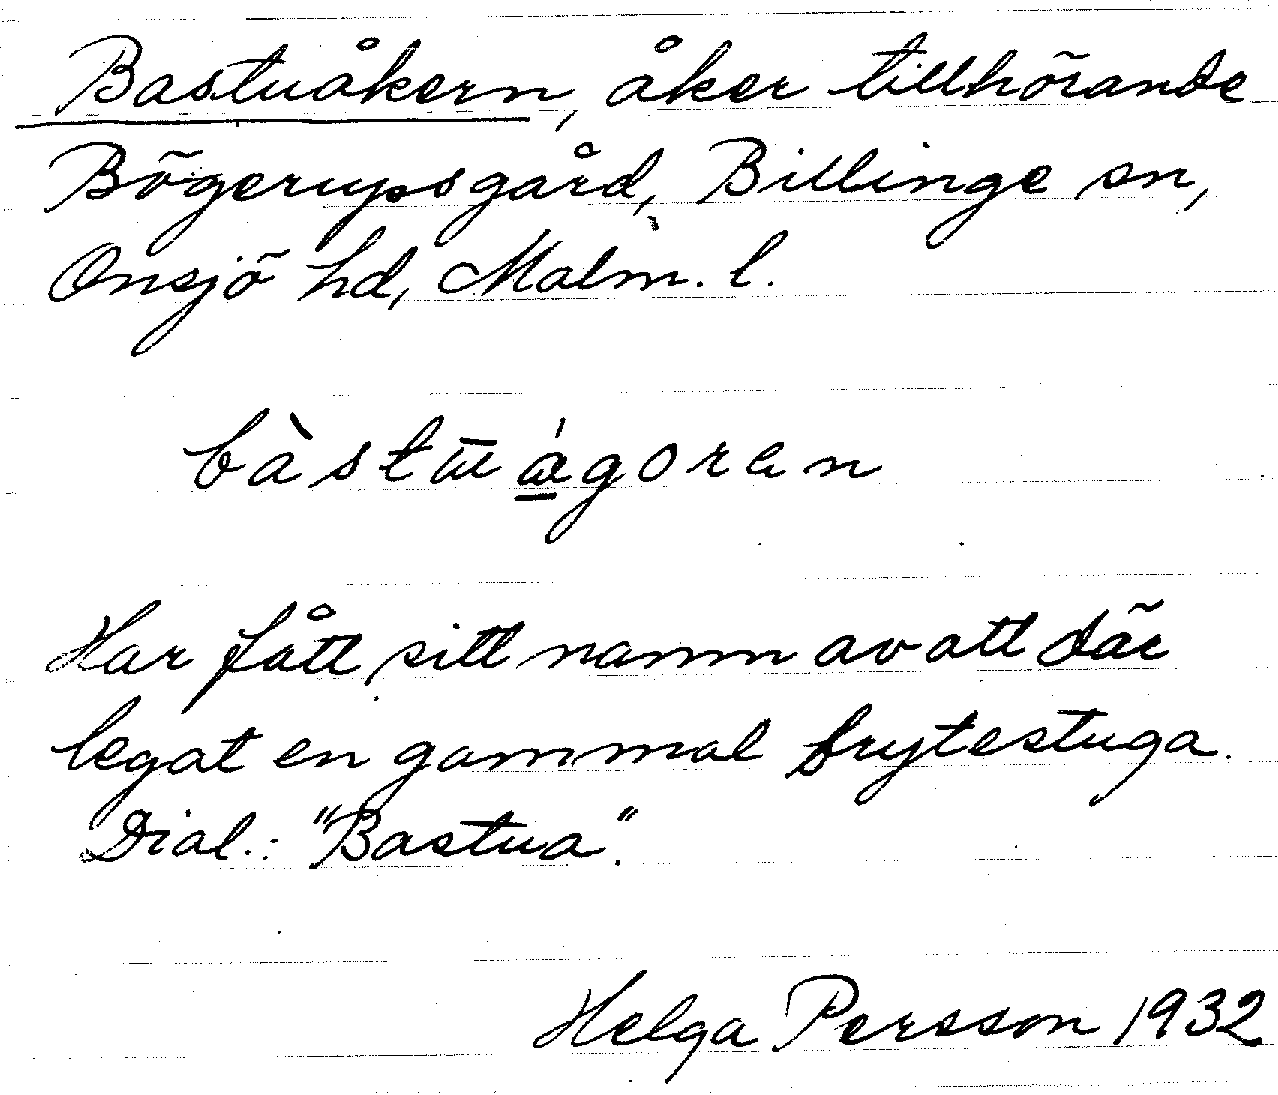 Bastuåkern, åker tillhörande
Bögerupsgård, Billinge sn,
Onsjö hd, Malm. l.
bàstūǽgoren
Har fått sitt namn av att där
legat en gammal brytestuga.
Dial.: "Bastua".
Helga Persson 1932